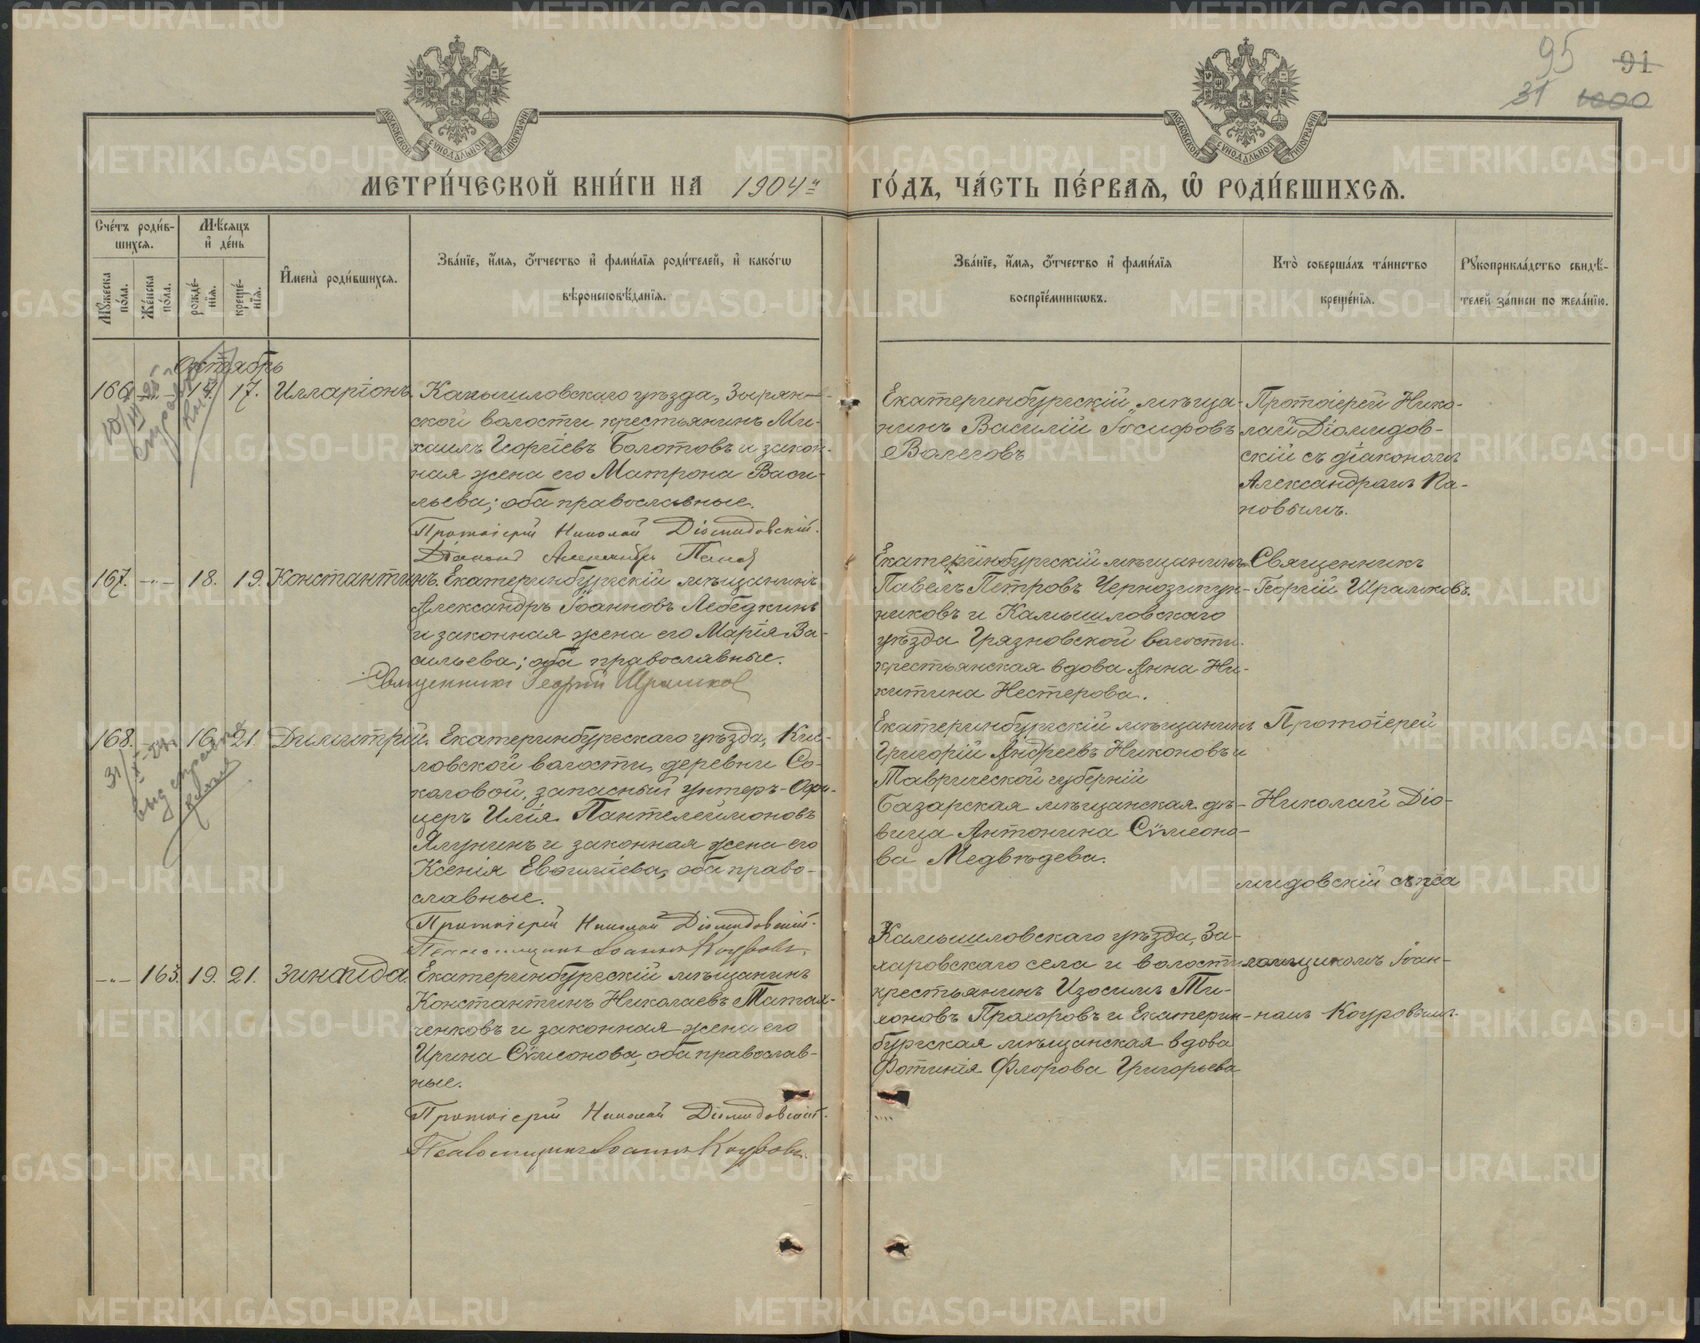 95 91
31 1000
МОСКОВСКОЙ СѴНОДАЛЬНОЙ ТИПОГРАФІИ
МОСКОВСКОЙ СѴНОДАЛЬНОЙ ТИПОГРАФІИ
МЕТРИ́ЧЕСКОЙ КНИ́ГИ НА 1904й ГО́ДЪ, ЧА́СТЬ ПЕ́РВАѦ, Ѡ҆ РОДИ́ВШИХСѦ.
Сче́тъ роди́в-
шихсѧ.
Мꙋ́жеска по́ла.
Же́нска по́ла.
Мѣ́сѧцъ
и҆ де́нь
рожде́-
нїѧ.
креще́-
нїѧ.
И҆мена̀ роди́вшихсѧ.
Зва́нїе, и҆́мѧ, ѻ҆́тчество и҆ фами́лїѧ роди́телей, и҆ како́гѡ
вѣроисповѣ́данїѧ.
Зва́нїе, и҆́мѧ, ѻ҆́тчество и҆ фами́лїѧ
воспрїе́мникѡвъ.
Кто̀ соверша́лъ та́инство
креще́нїѧ.
Рꙋкоприкла́дство свидѣ́-
телей за́писи по жела́нїю.
Октябрь
166. 17. Илларіонъ. Камышловскаго уѣзда, Зырян-
ской волости крестьянинъ Ми-
хаилъ Георгіевъ Болотовъ и закон-
ная жена его Матрона Васи-
льева; оба православные.
Протоіерей Николай Діомидовскій.
Діаконъ Александръ Пановъ
Екатеринбургскій мѣща-
нинъ Василій Іосифовъ
Волеговъ
Протоіерей Нико-
лай Діомидов-
скій съ діакономъ
Александромъ Па-
новымъ.
167. 18. 19. Константинъ. Екатеринбургскій мѣщанинъ
Александръ Іоанновъ Лебедкинъ
и законная жена его Марія Ва-
сильева; оба православные.
Священникъ Георгій
Екатеринбургскій мѣщанинъ
Павелъ Петровъ Чернозипун-
никовъ и Камышловскаго
уѣзда Грязновской волости
крестьянская вдова Анна Ни-
китина Нестерова.
Священникъ
Георгій
168. 16. 21. Димитрій. Екатеринбургскаго уѣзда, Кис-
ловской волости, деревни Со-
коловой, запасный унтеръ-офи-
церъ Илія Пантелеймоновъ
Ялунинъ и законная жена его
Ксенія, оба право-
славные.
Протоіерей Николай Діомидовскій.
Псаломщикъ Іоаннъ Коуровъ.
Екатеринбургскій мѣщанинъ
Григорій Андреевъ Никоновъ и
Таврической губерніи
Базарская мѣщанская дѣ-
вица Антонина Сѵмеоно-
ва Медвѣдева.
Протоіерей
Николай Діо-
мидовскій съ пса
ломщикомъ Іоан-
номъ Коуровымъ.
163. 19. 21. Зинаида. Екатеринбургскій мѣщанинъ
Константинъ Николаевъ
и законная жена его
Ирина Сѵмеонова, оба православ-
ные.
Протоіерей Николай Діомидовскій.
Псаломщикъ Іоаннъ Коуровъ.
Камышловскаго уѣзда, За-
харовскаго села и волости
крестьянинъ Изосимъ Ти-
хоновъ Прохоровъ и Екатерин-
бургская мѣщанская вдова
Фотинія Флорова Григорьева
METRIKI.GASO-URAL.RU